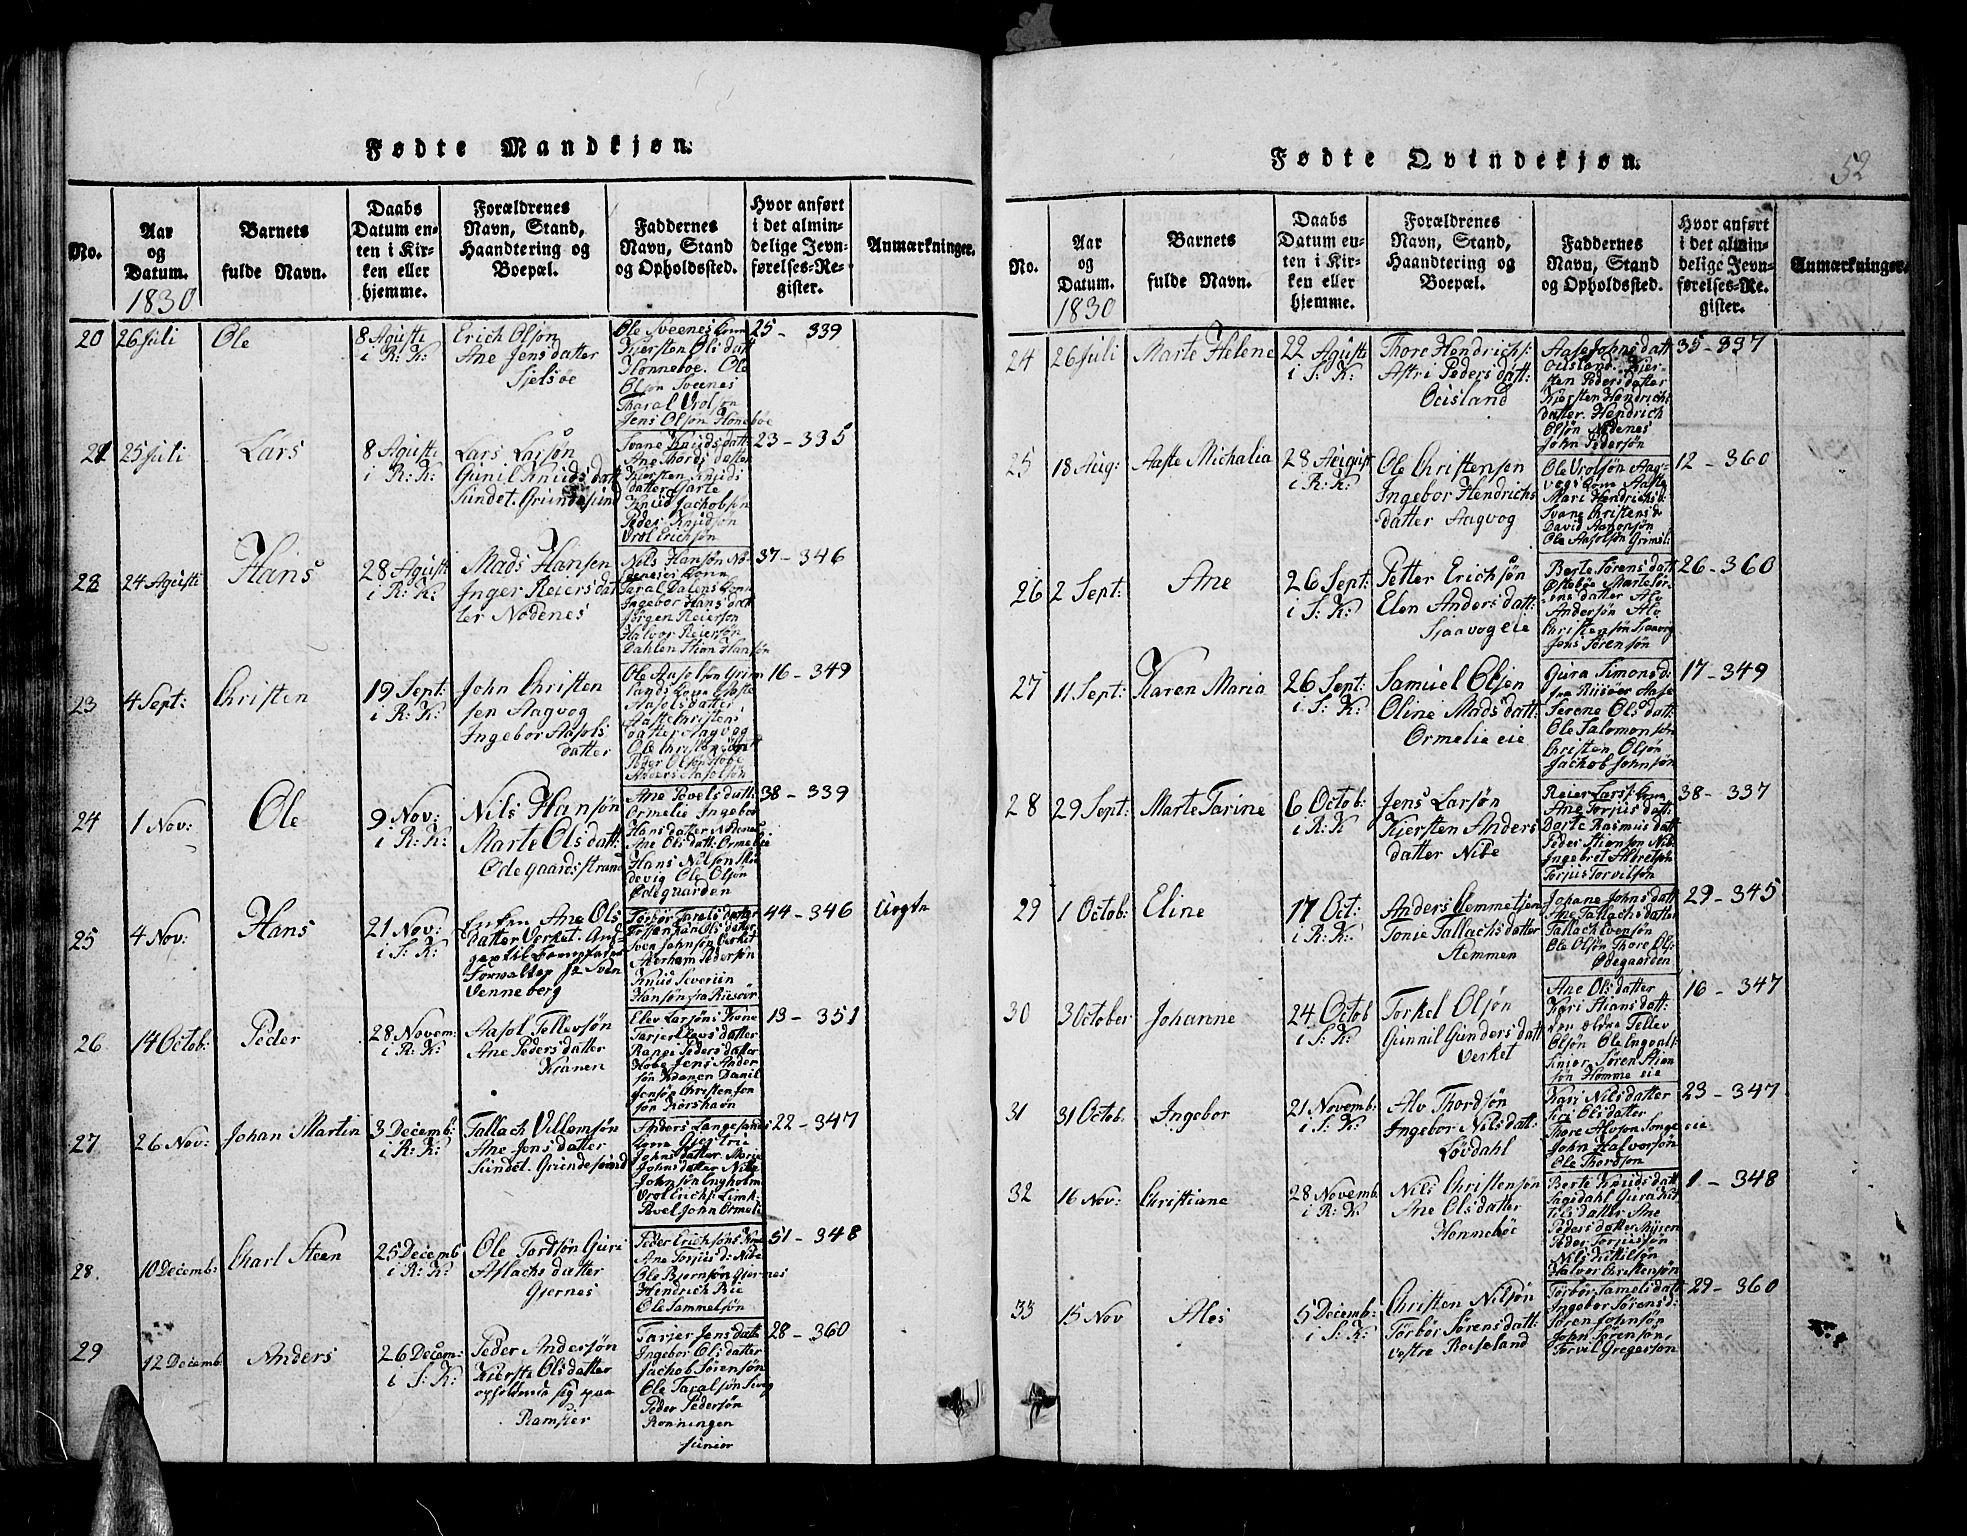 Fødte Mandkjøn.
No.
Aar
og
Datum.
1830
Barnets
fulde Navn.
Daabs
Datum en-
ten i Kir-
ken eller
hjemme.
Forældrenes
Navn, Stand,
Haandtering og
Boepæl.
Faddernes
Navn, Stand
og Opholdssted.
Hvor anført
i det almin-
delige Jevn-
førelses-Re-
gister.
Anmærkninger.
20
26 Juli
Ole
8 Agusti
i R: K:
Erich Olsøn
Ane Jensdatter
Sjelsøe
Ole Sveenes Kone
Kjersten Olisdatt
Honneboe. Ole
Olsøn Sveenes
Taral Vrolsøn
Jens Olsøn Honeboe
25 - 339
21
25 Juli
Lars
8 Agusti
i R: K:
Lars Larsøn
Gunil Knudsdatt
Sundet. Grundesund
Svane Knudsdatt:
Ane Thordsdatter
Kjersten Knuds
datter Garte
Knud Jachobsøn
Peder Knudsøn
Vrol Erichsøn
23 - 335
22
24 Agusti
Hans
28 Agusti
i R: K:
Mads Hansen
Inger Reiersdat
ter Nodenes
Nils Hansøn No-
denesés Kone
Taral Dalens Kone
Ingebor Hansdatt
Jørgen Reiersøn
Halvor Reiersøn
Dahlen Stian Hansøn
37 - 346
23
4 Sept:
Christen
19 Sept:
i R: K:
John Christen
sen Aagvog
Ingebor Aasols
datter
Ole Aasolsøn Grim
lands Kone
Aasolsdatter
Aaste Christens
datter Aagvog
Peder Olsøn Hobe
Anders Aasolsøn
16 - 349
24
1 Nov:
Ole
9 Nov:
i R: K:
Nils Hansøn
Marte Olsdatt:
Ødegaardsstrand
Ane Povelsdatt:
Ormelie Ingebor
Hansdatter Nodenes
Ane Olsdatt: Ormelie
Hans Nilsøn Sta
devig Ole Olsøn
Ødegaarden
38 - 339
25
4 Nov:
Hans
21 Nov:
i S: K:
Enken Ane Ols
datter Verket. And-
gav til Barnefader
Forvalter Sven
Venneberg
Torbør Tarelsdatter
Sven Johnsøn Verket
Abraham Pedersøn
Knud Severien
Hansøn fra Riisøer
44 - 346
Uægte
26
14 Octob:
Peder
28 Novem:
i R: K:
Aasol Tellefsøn
Ane Pedersdatter
Kranen
Elev Larsøns Kone
Tarjer Elevsdatter
Ranes Pedersdatter
Hobe Jens Ander
søn Kranen Danil
Jensøn Christen Jen
søn Korshavn
13 - 351
27
26 Nov:
Johan Martin
3 Decemb:
i R: K:
Tallach Villomsøn
Ane Jensdatter
Sundet. Grundesund
Anders Langesands
Kone Gjeg Siri
Johnsdatter Marie
Johnsdatter Nils
Johnsøn Engholm
Vrol Erichs: Limk:
Povel John Ormeli
22 - 347
28.
10 Decemb:
Carl Steen
25 Decemb
i R: K:
Ole Tordsøn Guri
Aslachsdatter
Gjernes
Peder Erichsøns Kone
Ane Torjusd: Nibe
Ole Bjørnsøn Gjernes
Hendrich Rie
Ole Sammelsøn
51 - 348
29
12 Decemb
Anders
26 Decem:
i S: K:
Peder Andersøn
Kierste Olsdatter
opholdende sig paa
Ramsker
Tarjer Jensdatt
Ingebor Olsdatter
Jachob Sørensøn
Ole Taralsøn Seveg
Peder Pedersøn
Ronningen
Junior
28 - 360
Fødte Qvindekjøn.
52
No.
Aar
og
Datum.
1830
Barnets
fulde Navn.
Daabs
Datum en-
ten i Kir-
ken eller
hjemme.
Forældrenes
Navn, Stand,
Haandtering og
Boepæl.
Faddernes
Navn, Stand
og Opholdssted.
Hvor anført
i det almin-
delige Jevn-
førelses-Re-
gister.
Anmærkninger.
24
26 Juli
Marte Helene
22 Agusti
i S: K:
Thore Hendrichs:
Astri Pedersdatt:
Ocisland
Aase Johnsdatt
Ocisland. Kjer-
sten Pedersdatter
Kjersten Hendrichs
datter. Hendrich
Olsøn Nodenes
John Pedersøn
35 - 337
25
18 Aug:
Aaste Michalia
28 August
i R: K:
Ole Christensen
Ingebor Hendrichs
datter Aagvog
Ole Vrolsøn Aag-
vogs Kone Aaste
Mari Hendrichsd:
Svane Christensd:
David Aanonsøn
Ole Aasolsøn Grimsl:
12 - 360
26
2 Sept:
Ane
26 Sept:
i S: K:
Petter Erichsøn
Elen Andersdatt:
Sjaavog eie
Berte Sørensdatt
Østebøe Marte Sør-
ensdatter Alv
Andersøn Alv
Christensøn Sjaavog
Jens Sørensøn
26 - 360
27
11 Sept:
Karen Maria
26 Sept:
i S: K:
Samuel Olsen
Oline Madsdatt:
Ormelie eie
Gura Simonsd:
fra Riisøer Aase
Serene Olsdatt:
Ole Salomonsøn
Christen Olsøn
Jachob Johnsøn
17 - 349
28
29 Sept:
Marte Tarine
6 Octob:
i R: K
Jens Larsøn
Kjersten Anders
datter Nibe
Reier Lars: Kone
Ane Torjusdatt:
Dorte Rasmusdatt
Peder Stiansøn Nibe
Torjus Torvilsøn
38 - 337
29
1 Octob:
Eline
17 Oct:
i R: K:
Anders Clemmetsen
Tonie Tallachsdatter
Stemmen
Johane Johnsdatt
Ane Tallachsdatter
Tallach Evensøn
Ole Olsøn Thore Ols:
Ødegaarden
29 - 345
30
3 October
Johanne
24 Octob
i S: K:
Torkel Olsøn
Gunnil Gundersdatt
Verket
Ane Olsdatter
Kari Stiansdatt:
den ældre Tellev
Olsøn Ole Ingvalt-
Snier Søren Stian
søn Homme eie
16 - 347
31
31 Octob.
Ingebor
21 Novemb:
i S: K:
Alv Thordsøn
Ingebor Nilsdatt:
Lovdahl
Kari Nilsdatter
Siri Olsdatter
Thore Alvson Songe eie
John Halvorsøn
Ole Thordson
23 - 347
32
16 Nov:
Christiane
28 Novemb
i R: K:
Nils Christensøn
Ane Olsdatter
Honnebøe
Berte Knudsdatt
Sagedahl Gura Kit-
tilsdatter Ane
Pedersdatter Myren
Peder Torjussøn
Nils Kittilsøn
Halvor Christensøn
1 - 348
33
15 Nov
Ales
5 Decemb:
i S: K:
Christen Nilsøn
Torbør Sørensdatt:
vestre Roeseland
Torbør Samelsdatt
Ingebor Sørensd:
Søren Johnsøn
John Sørensøn,
Torvil Gregersøn
29 - 360